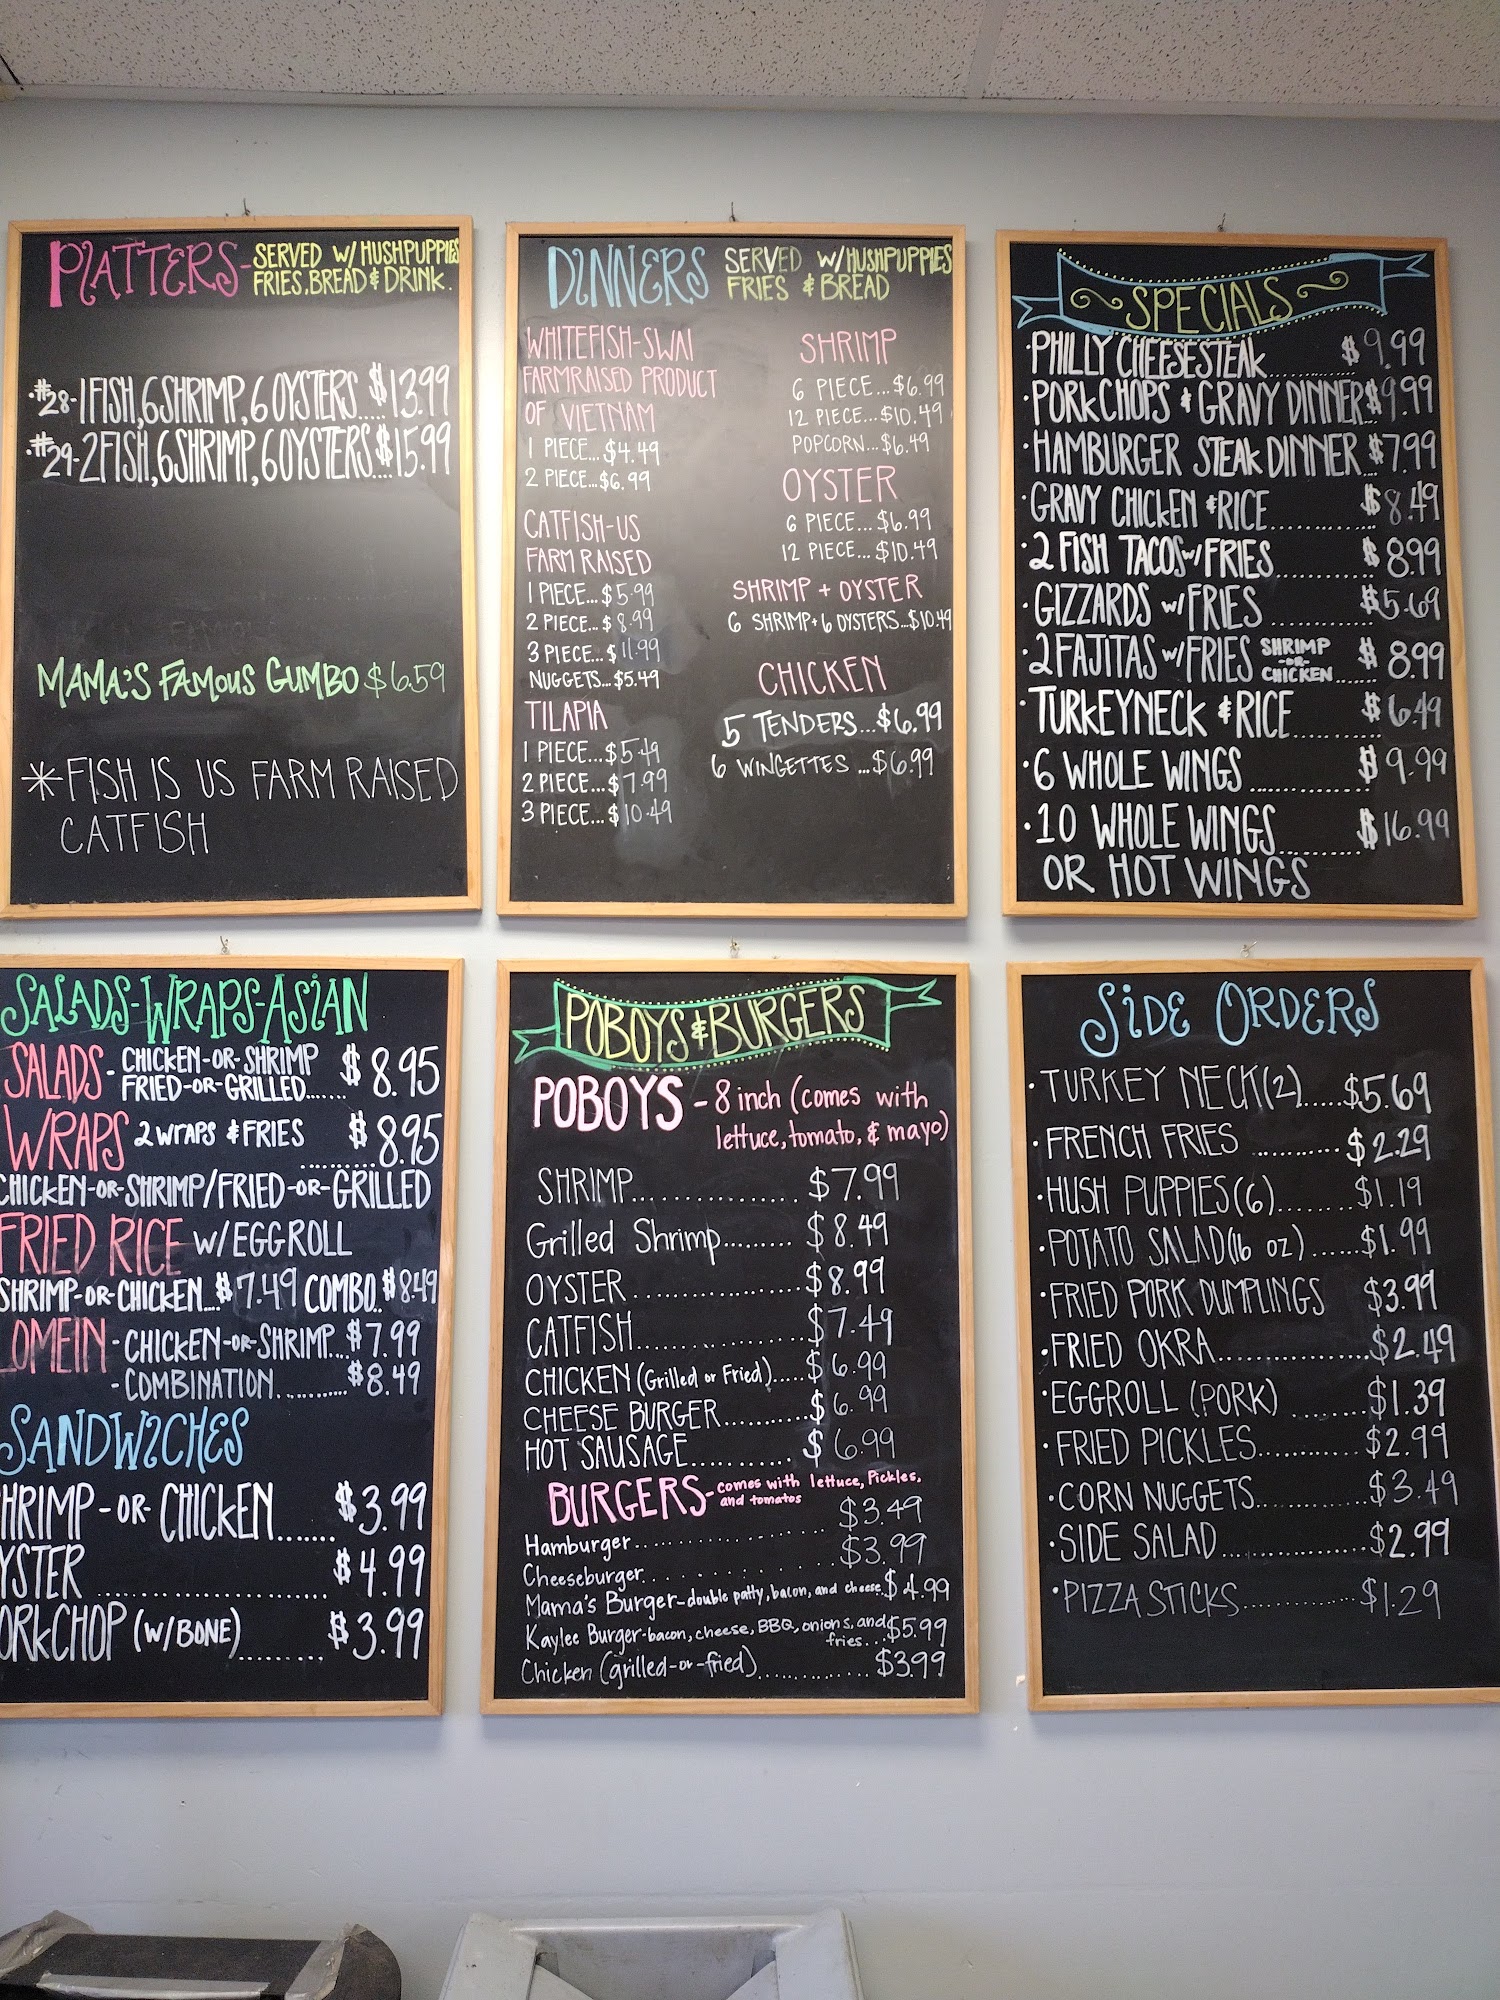 PLATTERS - SERVED W/ HUSHPUPPIES
FRIES, BREAD & DRINK.
• #28-1 FISH, 6 SHRIMP, 6 OYSTERS....$13.99
• #29-2 FISH, 6 SHRIMP, 6 OYSTERS....$15.99
MAMA'S FAMOUS GUMBO $6.59
* FISH IS US FARM RAISED
CATFISH
DINNERS SERVED W/ HUSHPUPPIES
FRIES & BREAD
WHITEFISH-SWAI
FARMRAISED PRODUCT
OF VIETNAM
1 PIECE...$4.49
2 PIECE...$6.99
CATFISH-US
FARM RAISED
1 PIECE...$5.99
2 PIECE...$8.99
3 PIECE...$11.99
NUGGETS...$5.49
TILAPIA
1 PIECE...$5.49
2 PIECE...$7.99
3 PIECE...$10.49
SHRIMP
6 PIECE...$6.99
12 PIECE...$10.49
POPCORN...$6.49
OYSTER
6 PIECE...$6.99
12 PIECE...$10.49
SHRIMP + OYSTER
6 SHRIMP+6 OYSTERS...$10.49
CHICKEN
5 TENDERS...$6.99
6 WINGETTES...$6.99
SPECIALS
• PHILLY CHEESESTEAK........$9.99
• PORKCHOPS & GRAVY DINNER $9.99
• HAMBURGER STEAK DINNER...$7.99
• GRAVY CHICKEN & RICE...........$8.49
• 2 FISH TACOS W/ FRIES..........$8.99
• GIZZARDS W/ FRIES...........$5.69
• 2 FAJITAS W/ FRIES SHRIMP -OR- CHICKEN......$8.99
• TURKEYNECK & RICE.........$6.49
• 6 WHOLE WINGS..............$9.99
• 10 WHOLE WINGS...........$16.99
OR HOT WINGS
SALADS-WRAPS-ASIAN
SALADS - CHICKEN-OR-SHRIMP
FRIED-OR-GRILLED.......$8.95
WRAPS 2 WRAPS & FRIES .........$8.95
CHICKEN-OR-SHRIMP/FRIED-OR-GRILLED
FRIED RICE W/ EGGROLL
SHRIMP-OR-CHICKEN...$7.49 COMBO..$8.49
LOMEIN - CHICKEN-OR-SHRIMP...$7.99
- COMBINATION..........$8.49
SANDWICHES
HRIMP-OR-CHICKEN......$3.99
YSTER ......................$4.99
ORKCHOP (W/BONE).........$3.99
POBOYS & BURGERS
POBOYS - 8 inch (comes with
lettuce, tomato, & mayo)
SHRIMP................$7.99
Grilled Shrimp.........$8.49
OYSTER..................$8.99
CATFISH.................$7.49
CHICKEN (Grilled or Fried).....$6.99
CHEESE BURGER...........$6.99
HOT SAUSAGE............$6.99
BURGERS - comes with lettuce, Pickles,
and tomatos
Hamburger...................$3.49
Cheeseburger...............$3.99
Mama's Burger-double patty, bacon, and cheese.$4.99
Kaylee Burger-bacon, cheese, BBQ, onions, and
fries...$5.99
Chicken (grilled-or-fried)..............$3.99
SIDE ORDERS
• TURKEY NECK (2).....$5.69
• FRENCH FRIES ...........$2.29
• HUSH PUPPIES (6)........$1.19
• POTATO SALAD (16 oz)......$1.99
• FRIED PORK DUMPLINGS $3.99
• FRIED OKRA.................$2.49
• EGGROLL (PORK) ........$1.39
• FRIED PICKLES............$2.99
• CORN NUGGETS............$3.49
• SIDE SALAD.................$2.99
• PIZZA STICKS..............$1.29